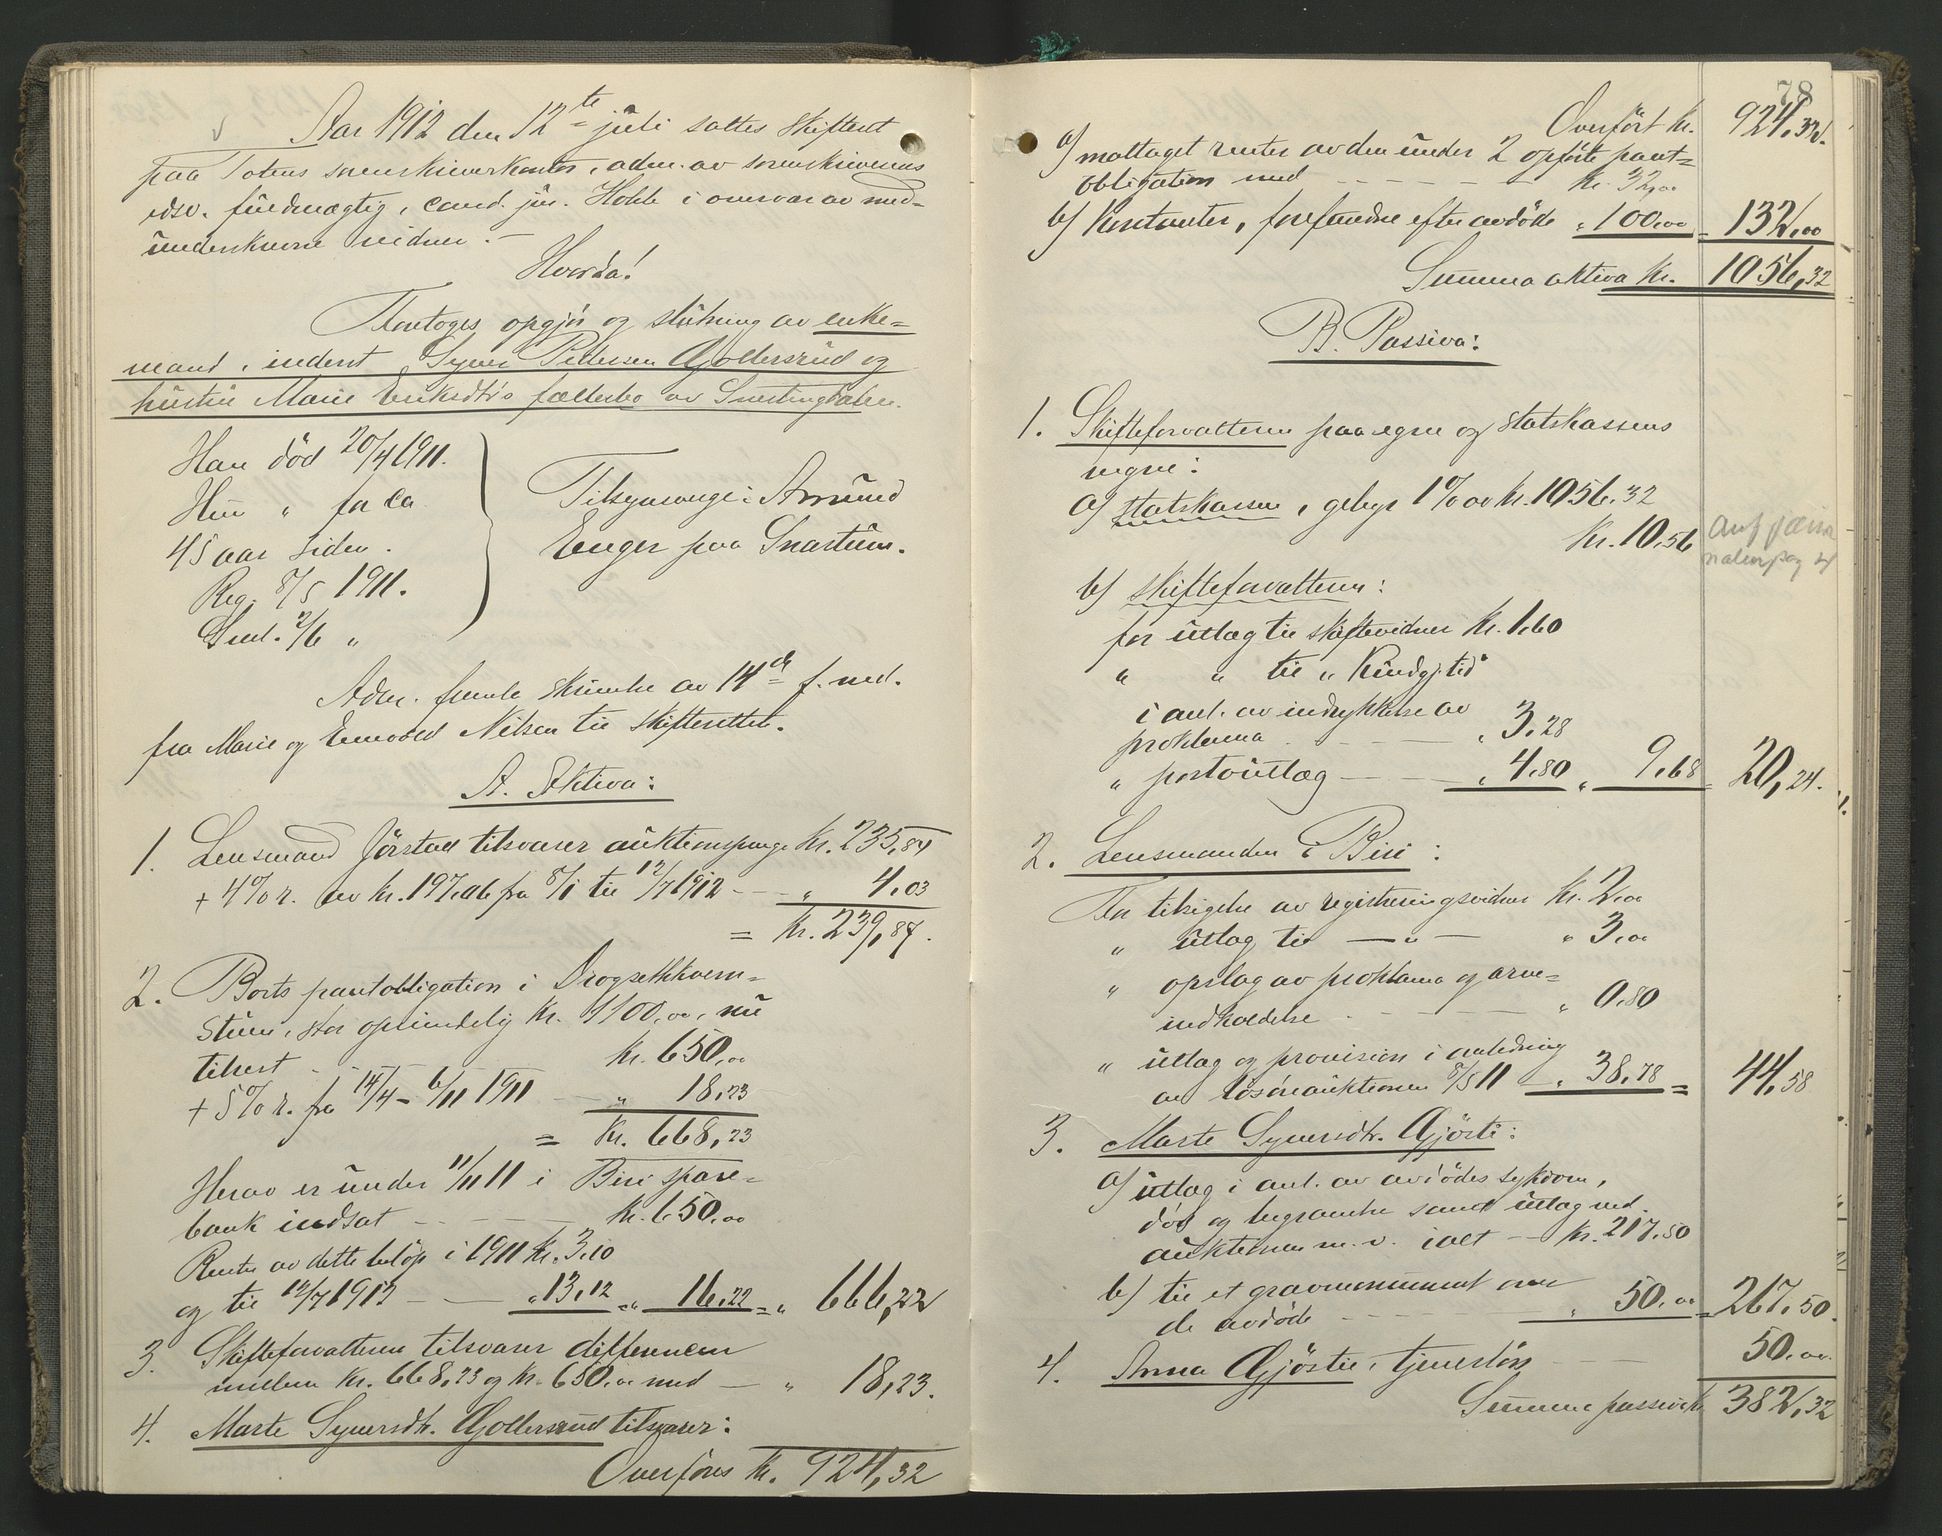 Aar 1912 den 12te juli sattes skifteret
paa Totens sorenskriverkontor, adm. av sorenskriverens
edsv. fuldmægtig, cand. jur. Holck i overvær av med-
underskrevne vidner.-
Hvorda!
Foretoges opgjør og slutning av enke-
mand, inderst Syver Pedersen Gollersrud og
hustru Marie Eriksdtr's fællesbo av Snertingdalen.
Han död 20/4 1911.
Hun " for ca
45 aar siden.
Reg. 8/5 1911.
Sml. 2/6 "
Tilsynsverge: Amund
Enger paa Snartum.
Adm. fremla skrivelse av 14de f. md.
fra Marie og Enevold Nilsen til skifteretten.
A. Aktiva:
1. Lensmand Jørstad tilsvarer auktionspenge kr. 235,84
+ 4% r. av kr. 197,06 fra 8/1 til 12/7 1912 - - " 4,03
= kr. 239,87.
2. Boets pantobligation i Drogsethkvern-
stuen, stor oprindelig kr. 1100,00, nu
tilrest - kr. 650,00
+ 5% r. fra 14/4 - 6/11 1911 - " 18,23
= kr. 668,23
Herav er under 11/11 11 i Biri spare-
bank indsat - - - kr. 650,00
Renter av dette beløp i 1911 kr. 3,10
og til 12/7 1912 - - " 13,12 " 16,22 = " 666,22
3. Skifteforvalteren tilsvarer differencen
mellem kr. 668,23 og kr. 650,00 med - " 18,23.
4. Marte Syversdtr. Gollersrud tilsvarer:
Overføres kr. 924,32
78
Overført kr. 924,32.
a) mottaget renter av den under 2 opførte pant-
obligation med - - - kr. 32,00
b) Kontanter, forefundne efter avdøde " 100,00 = 132,00
Summa aktiva kr. 1056,32
B. Passiva:
1. Skifteforvalteren paa egne og statskassens
vegne:
a) statskassen, gebyr 1% av kr. 1056,32
kr. 10,56
b) skifteforvalteren:
for utlæg til skiftevidner kr. 1,60
" " til "Kundgj.tid"
i anl. av indrykkelse av
proklama - - - " 3,28
" portoutlæg - - " 4,80 " 9,68 = 20,24.
2. Lensmanden i Biri:
For tilsigelse av registreringsvidner kr. 2,00
" utlæg til - " - " 3,00
" opslag av proklama og arve-
indkaldelse - - - " 0,80
" utlæg og provision i anledning
av løsøreauktionen 8/5 11 - " 38,78 = 44,58
3. Marte Syversdtr. Gjöste:
a) utlæg i anl. av avdødes sykdom,
død og begravelse samt utlæg ved
auktionen m.v. ialt - kr. 217,50
b) til et gravmonument over
de avdøde - - - " 50,00 = 267,50
4. Anna Gjöste, tjenerløn - - 50,00.
Summa passiva kr. 382,32